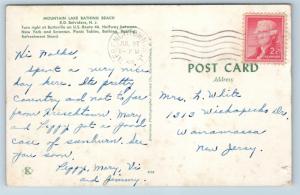 MOUNTAIN LAKE BATHING BEACH
R.D. Belvidere, N. J.
Turn right at Buttzville on U.S. Route 46, Halfway between
New York and Scranton. Picnic Tables, Bathing, Boating,
Refreshment Stand
POST CARD
Address
2¢
Hi Walker,
Spent a very nice
day here. Its pretty
country and not to far
from Hackettstown. Mary
and Peggy got is good
case of sunburn. See
you soon.
Peggy, Mary, Vi
and Jimmy.
Mrs. L. White
1313 Wickapecko Dr.
Wanamassa
New Jersey.
K